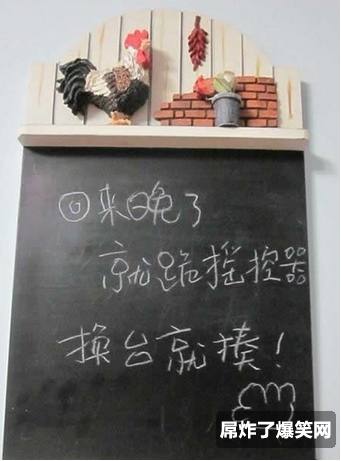 回来晚了
就跪摇控器
换台就揍!
屌炸了爆笑网